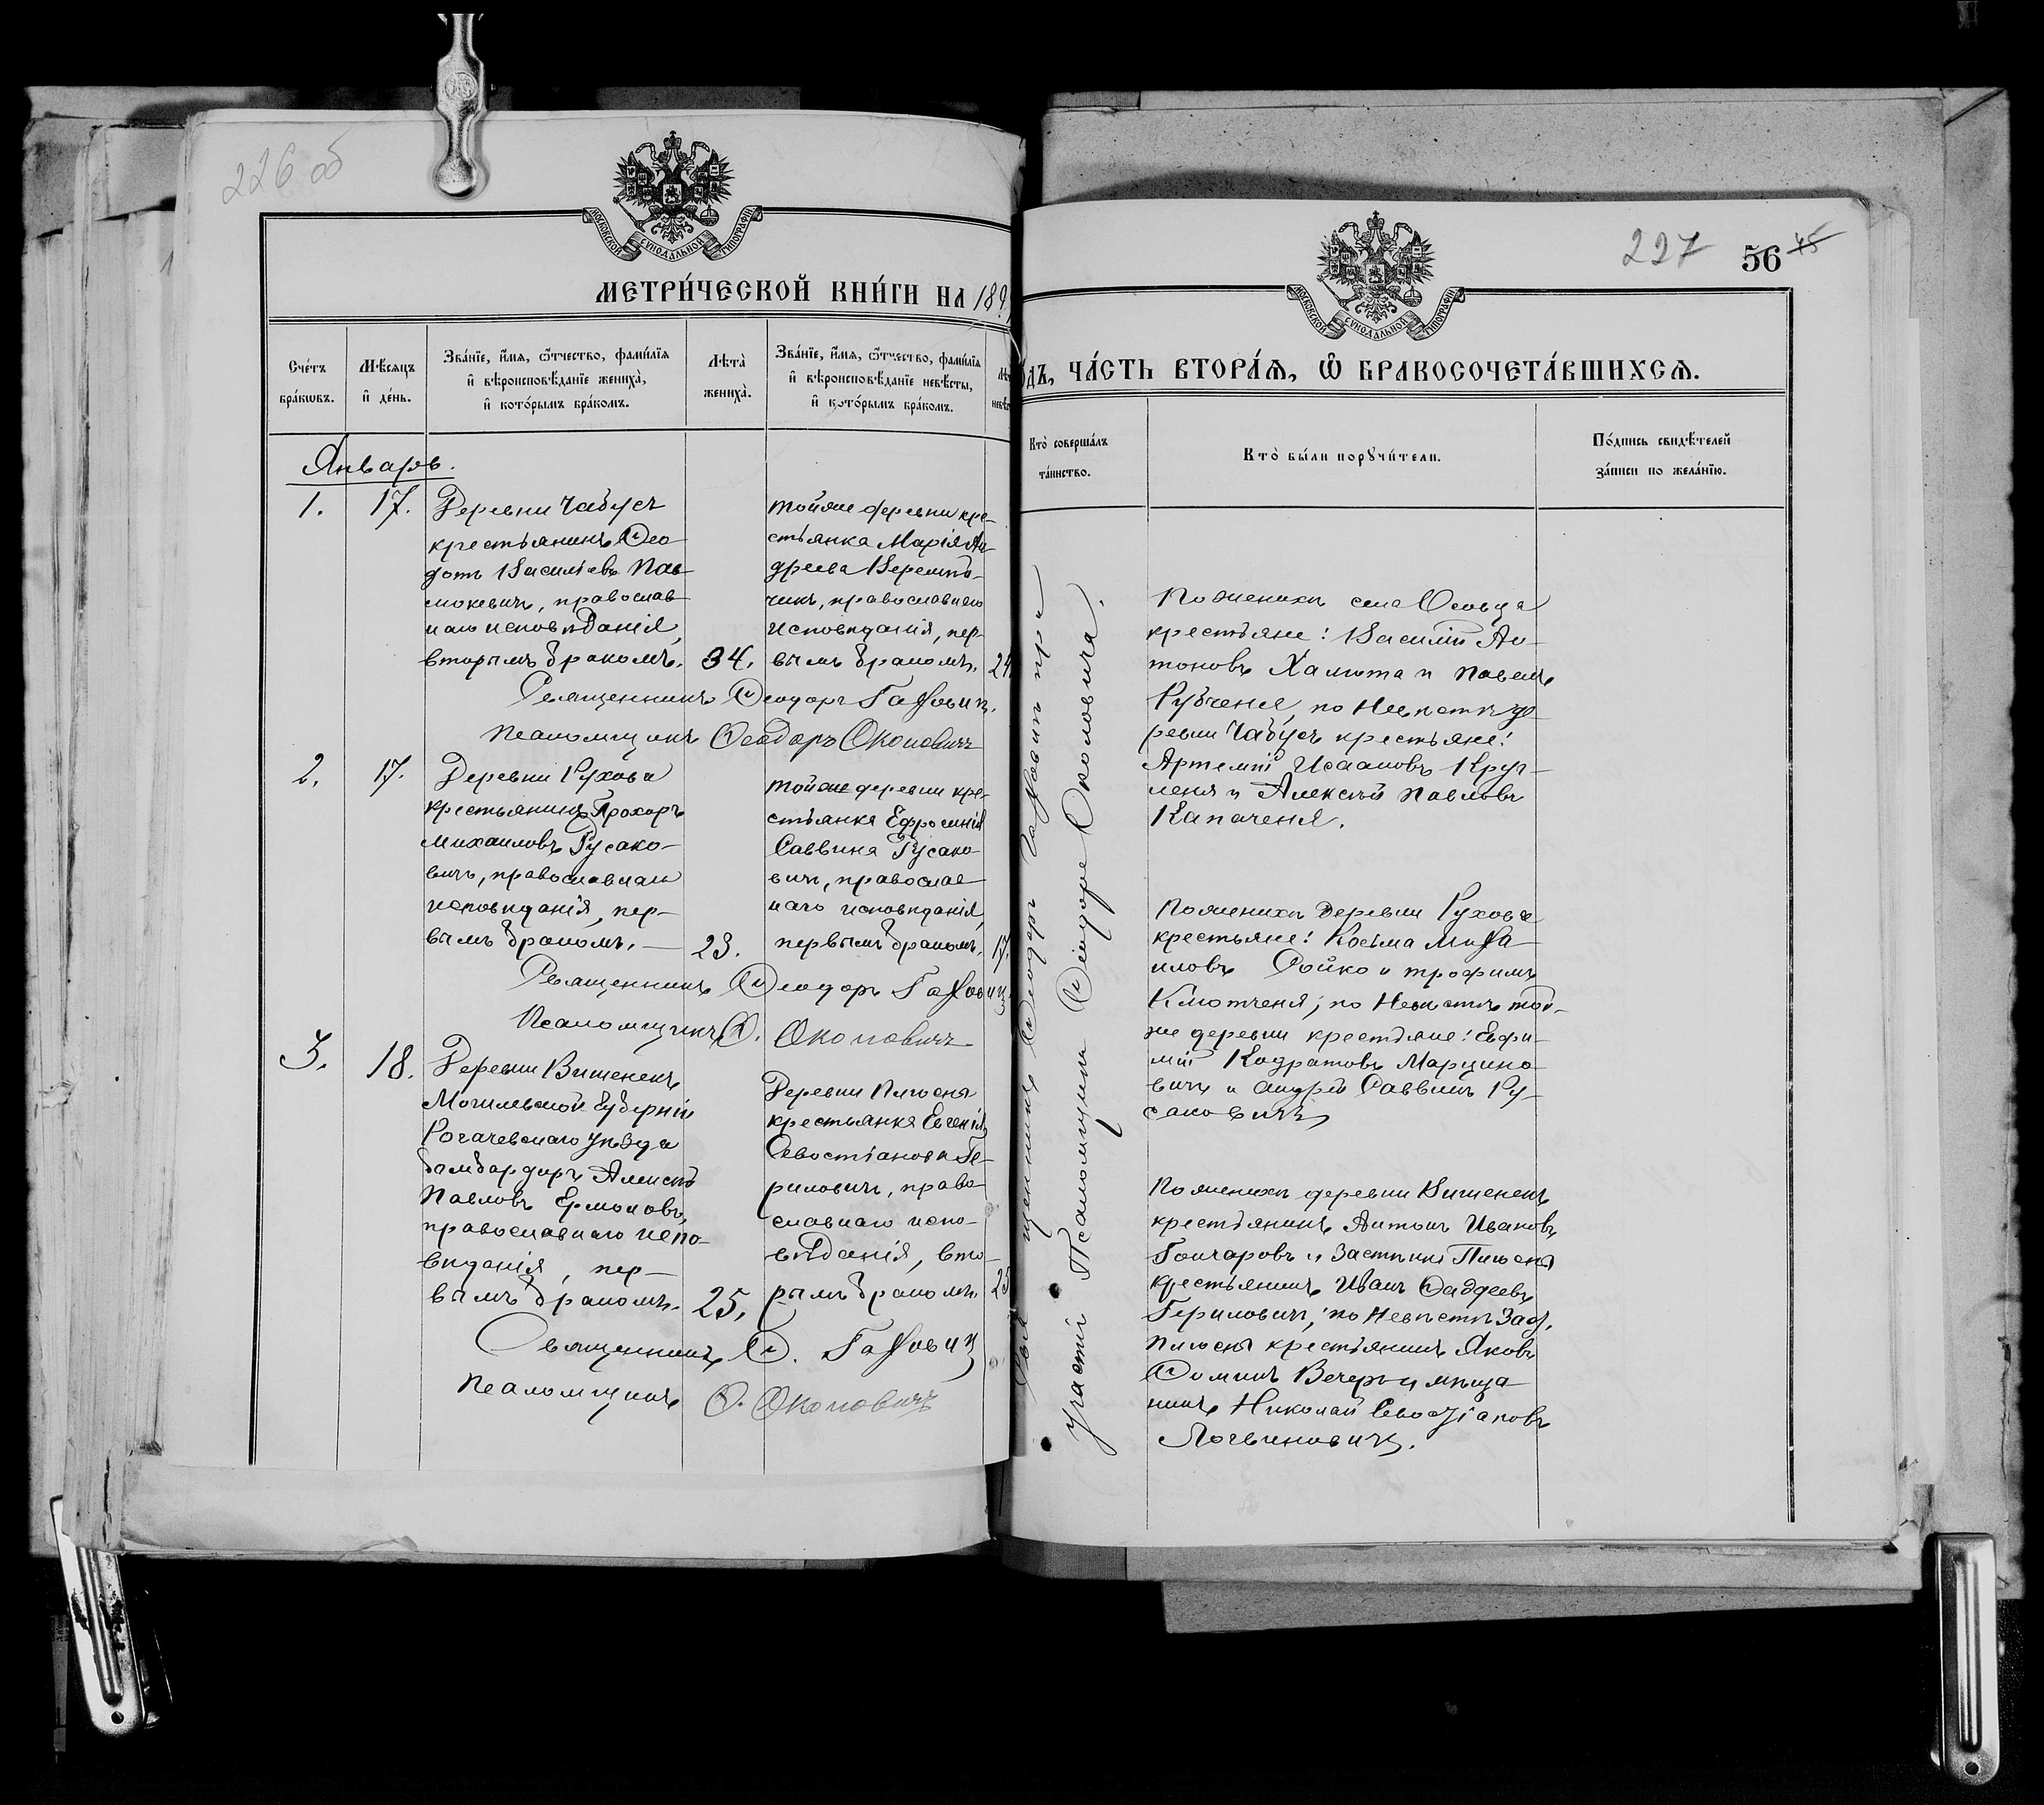 226 об
МОСКОВСКОЙ СѴНОДАЛЬНОЙ ТИПОГРАФІИ
МЕТРИ́ЧЕСКОЙ КНИ́ГИ НА 189
Сче́тъ бра́кωвъ.
Мѣ́сяцъ и҆ де́нь.
Зва́нїе, и҆́мя, ѻ҆́тчество, фами́лїя
и҆ вѣроисповѣ́данїе жениха̀,
и҆ кото́рымъ бра́комъ.
Лѣта̀ жениха̀.
Зва́нїе, и҆́мя, ѻ҆́тчество, фами́лїя
и҆ вѣроисповѣ́данїе невѣ́сты,
и҆ кото́рымъ бра́комъ.
Январь.
1.
17.
Деревни Чабусъ
крестьянинъ Ѳео
дотъ Васильевъ Пав
люкевичъ, православ
наго исповѣданія,
вторымъ бракомъ.
34.
тойже деревни кре-
стьянка Марія Ан-
дреева Веремѣй-
чикъ, православнаго
исповѣданія, пер-
вымъ бракомъ.
24
Священникъ Ѳеодоръ Гахович.
Псаломщикъ Ѳеодоръ Околовичъ
2.
17.
Деревни Рухова
крестьянинъ Прохоръ
Михаиловъ Русако-
вичъ, православнаго
исповѣданія, пер-
вымъ бракомъ.
23.
тойже деревни кре-
стьянка Ефросинія
Саввина Русако-
вичъ, православ
наго исповѣданія,
первымъ бракомъ.
17.
Священникъ Ѳеодоръ Гахович
Псаломщикъ Ѳ. Околовичъ
3.
18.
Деревни Вишенекъ
Могилевской губерніи
Рогачевскаго уѣзда
бомбардиръ Алексѣй
Павловъ Ермоловъ,
православнаго испо-
вѣданія, пер-
вымъ бракомъ.
25.
Деревни Плюсня
крестьянка Евгенія
Севостіанова Ге-
рилович, право
славнаго испо-
вѣданія, вто-
рымъ бракомъ.
25
Священникъ Ѳ. Гахович
Псаломщикъ Ѳ. Околовичъ
227 56 45
МОСКОВСКОЙ СѴНОДАЛЬНОЙ ТИПОГРАФІИ
ДЪ, ЧА́СТЬ ВТОРА́Я, Ѽ БРАКОСОЧЕТА́ВШИХСЯ.
Кто̀ соверша́лъ
та́инство.
Кто̀ бы́ли порꙋчи́тели.
По́дпись свидѣ́телей
за́писи по жела́нїю.
щенникъ Ѳеодоръ Гахович при
участіи Псаломщика Ѳеодора Околовича.
По женихѣ села Осовца
крестьяне: Василій Ан-
тоновъ Халюта и Павелъ
Рубченя, по невѣстѣ де
ревни Чабусъ крестьяне:
Артемій Исааковъ Круг-
леня и Алексѣй Павловъ
Капаченя.
По женихѣ деревни Рухова
крестьяне: Косьма Миха
иловъ Сойко и Трофимъ
Клютченя; по невѣстѣ той-
же деревни крестьяне: Евфи-
мій Кодратовъ Марцино-
вич и Андрей Саввинъ Ру-
сакович
По женихѣ деревни Вишенекъ
крестьянинъ Антонъ Ивановъ
Гончаровъ и застѣнка Плюсня
крестьянинъ Иванъ Ѳаддеевъ
Герилович; по невѣстѣ заст.
Плюсня крестьянинъ Яковъ
Ѳоминъ Вечеръ и мѣща
нинъ Николай Севостіановъ
Логвинович.